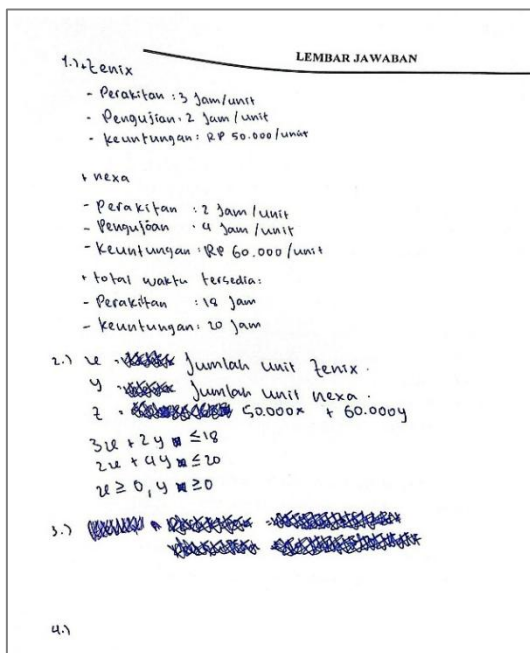 LEMBAR JAWABAN
1.) + Zenix
- Perakitan : 3 Jam/unit
- Pengujian : 2 Jam/unit
- Keuntungan : RP 50.000/unit
+ nexa
- Perakitan : 2 Jam/unit
- Pengujian : 4 Jam/unit
- Keuntungan : RP 60.000/unit
+ total waktu tersedia:
- Perakitan : 18 Jam
- Keuntungan : 20 Jam
2.) x = Jumlah unit Zenix.
y = Jumlah unit nexa.
z = 50.000x + 60.000y
3x + 2y ≤ 18
2x + 4y ≤ 20
x ≥ 0, y ≥ 0
3.)
4.)